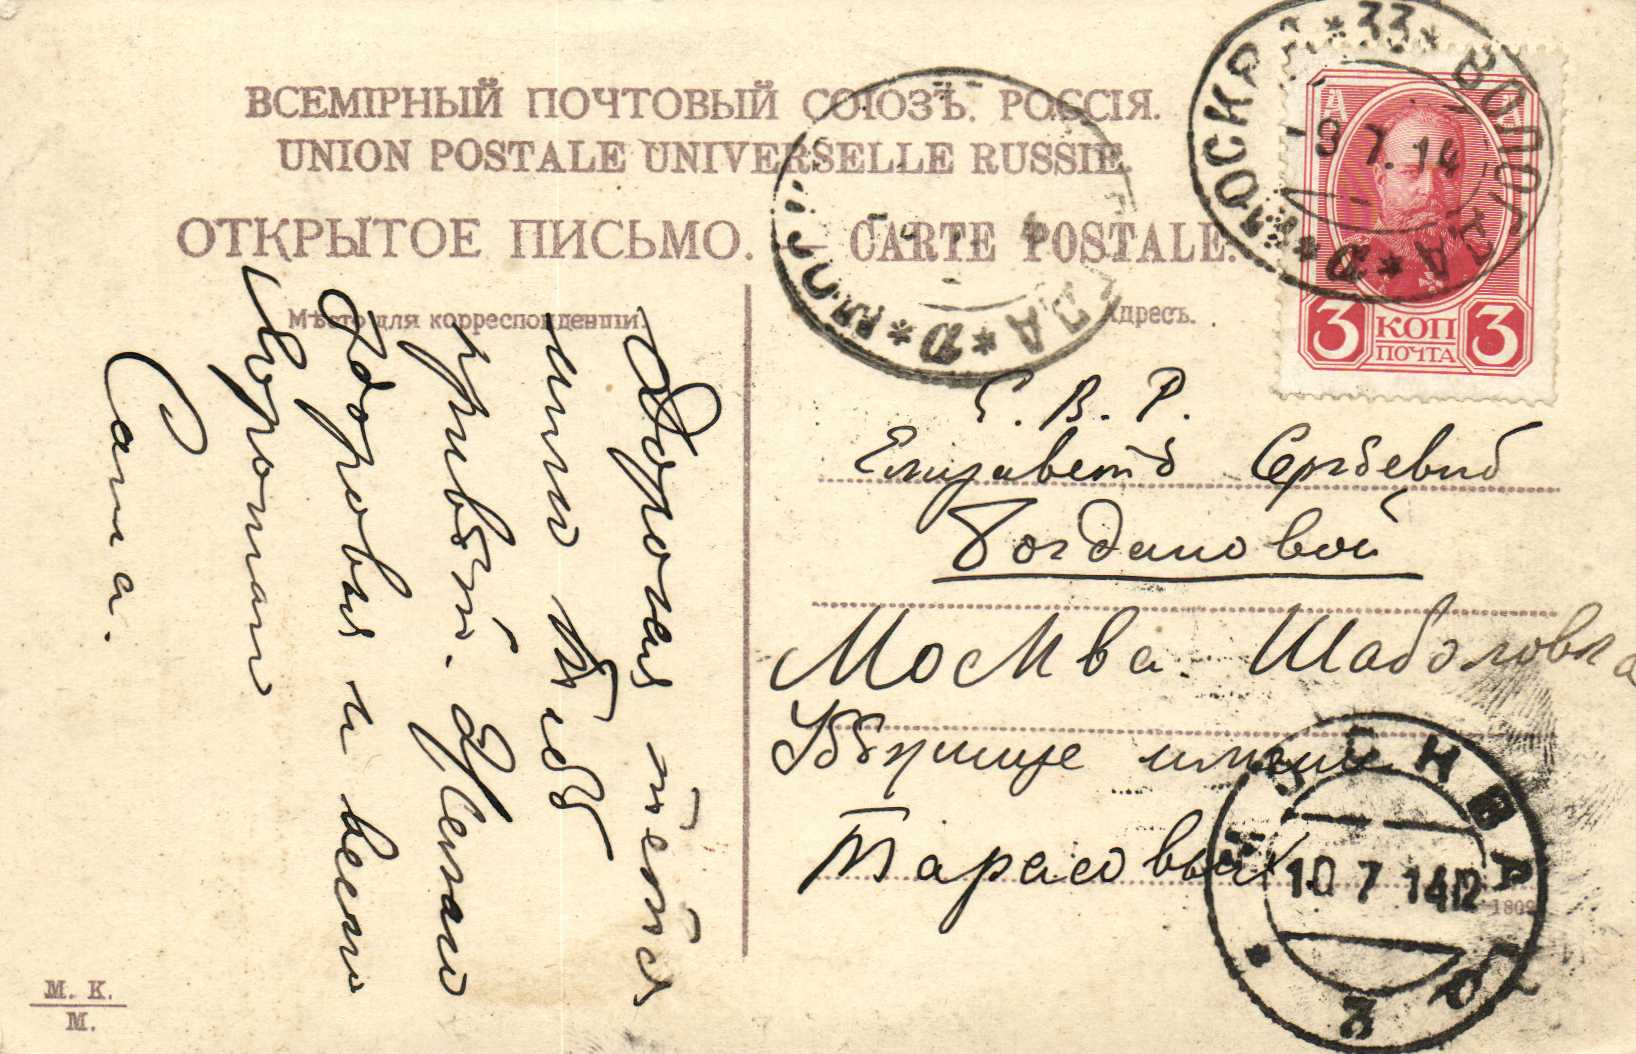 ВСЕМІРНЫЙ ПОЧТОВЫЙ СОЮЗЪ. РОССІЯ.
UNION POSTALE UNIVERSELLE RUSSIE.
ОТКРЫТОЕ ПИСЬМО. — CARTE POSTALE.
Мѣсто для корреспонденціи.
Адресъ.
Дорогая тетя
шлю тебѣ
привѣтъ. Желаю
здоровья и весел
Хорошаго
Саша.
Е. В. Р.
Елизаветѣ Сергѣевнѣ
Богдановой
Москва. Шаболовка
Убѣжище имени
Тарасовыхъ
МОСКВА * 33 * ВОЛОГДА * Д *
8 7. 14
3 КОП 3
ПОЧТА
МОСКВА
10 7 14 12
2
1809
М. К.
М.